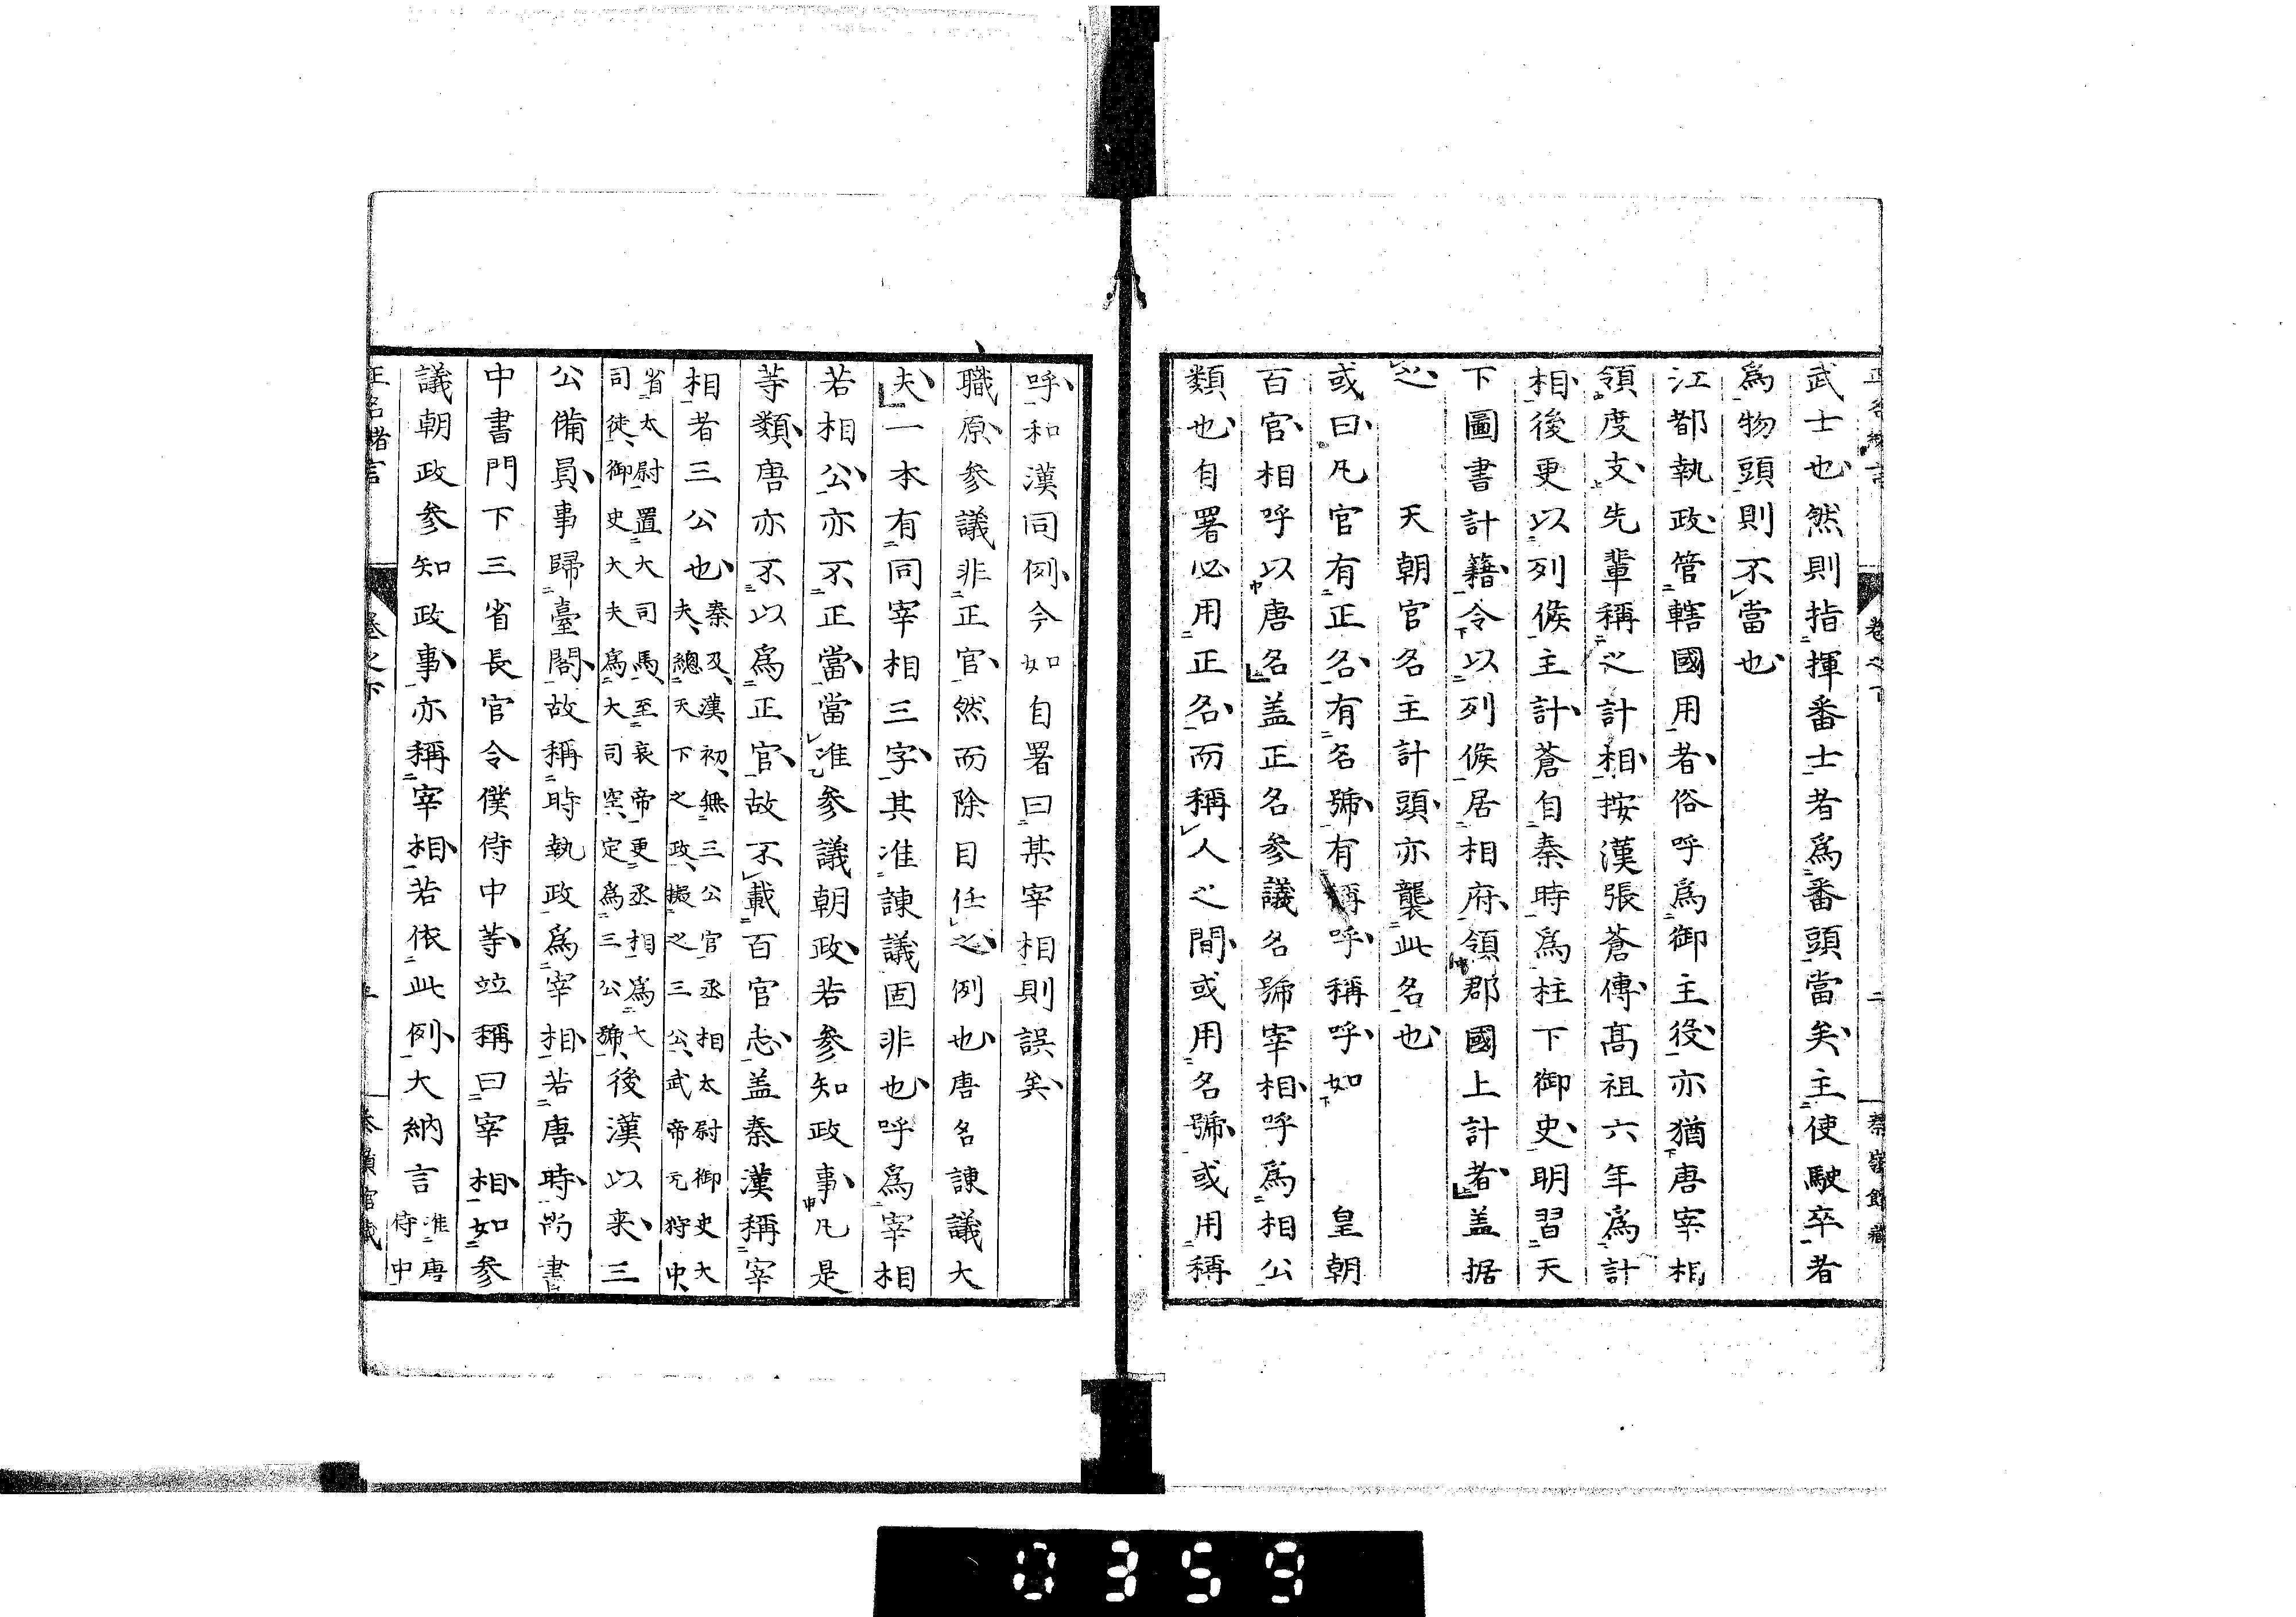 武士也然則指揮番士者爲番頭當矣主使駛卒者
爲物頭則不當也
江都執政管轄國用者俗呼爲御主役亦猶唐宰相
領度支先輩稱之計相按漢張蒼傳高祖六年爲計
相後更以列侯主計蒼自秦時爲柱下御史明習天
下圖書計籍令以列侯居相府領郡國上計者盖据
之　　天朝官名主計頭亦襲此名也
或曰凡官有正名有名號有稱呼稱呼如　　皇朝
百官相呼以唐名盖正名參議名號宰相呼爲相公
類也自署必用正名而稱人之間或用名號或用稱
呼和漢同例今如自署曰某宰相則誤矣
職原參議非正官然而除目任之例也唐名諫議大
夫一本有同宰相三字其准諫議固非也呼爲宰相
若相公亦不正當當准參議朝政若參知政事凡是
等類唐亦不以爲正官故不載百官志盖秦漢稱宰
相者三公也秦及漢初無三公官丞相太尉御史大
夫總天下之政擬之三公武帝元狩中
省太尉置大司馬至哀帝更丞相爲大
司徒御史大夫爲大司空定爲三公號後漢以来三
公備員事歸臺閣故稱時執政爲宰相若唐時尚書
中書門下三省長官令僕侍中等竝稱曰宰相如參
議朝政參知政事亦稱宰相若依此例大納言准唐
侍中
正名緒言　卷之下